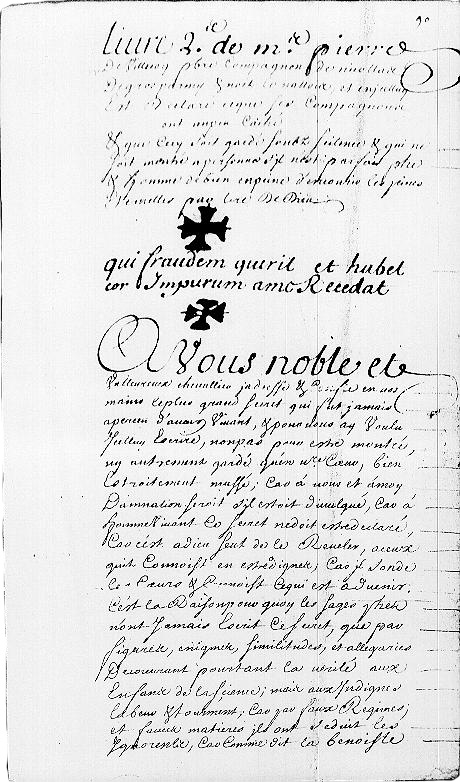 90
Livre 2.e de m.re pierre
De Vitecoq pbre Compagnon de nicollas
Degrosparmy & noel le vallois, et en icelluy
Est Declaré ce que ses Compagnons
ont auoin Caché
& que Cecy soit gardé soubz silence & qui ne
soit montré a personne s'il n'est parfait pbre
& Homme de bien en peine d'encourir les peines
Eternelles par lire De Dieu
qui fraudem querit et habet
cor Impurum amo Recedat
A Vous noble et
Valleureux chevallier jadresse & Confie en vos
mains le plus grand secret qui fut jamais
aperceu d'aucun Vivant, & pour vous ay Voulu
Icelluy Escrire, non pas pour estre montré,
ny autrement gardé qu'en v.re Cœur, bien
Estroitement mussé; Car à vous et à moy
Damnation seroit s'il estoit divulgué, Car à
homme Vivant Ce secret ne doit estre declaré,
Car c'est a dieu seul de le Reveler, a ceux
qu'il Connoist en estre dignes; Car jl sonde
les Cœurs & Connoist Ce qui est à Duenir.
C'est la Raison pourquoy les sages phes
n'ont Jamais Escrit Ce secret, que par
figures, enigmes, similitudes, et allegories
Decouurant pourtant la verité aux
Enfans de la science; mais aux Indignes
labeur & tourment; Car par faux Regimes;
et fausses matieres ils ont seduit les
Ignorents, Car Comme dit la benoiste